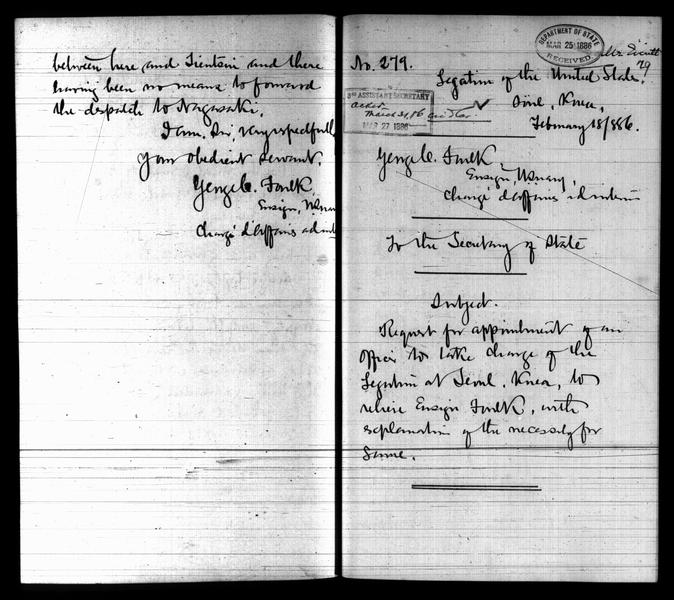 between here and Trenton and there
having been no means to forward
the despatch to Nagasaki.
I am, Sir, very respectfully
Your obedient servant,
George C. Foulk
Ensign, U.S. Navy
Chargé d'Affaires ad int
No. 279.
DEPARTMENT OF STATE
MAR 25 1886
RECEIVED
Mr
29
Legation of the United States,
Söul, Korea,
February 18/886.
3RD ASSISTANT SECRETARY
March 31, 86
MAR 27 1886
George C. Foulk,
Ensign, U.S. Navy,
Chargé d'Affaires ad interim
To the Secretary of State
Subject.
Request for appointment of an
Officer to take charge of the
Legation at Seoul, Korea, to
relieve Ensign Foulk, with
explanation of the necessity for
Same.